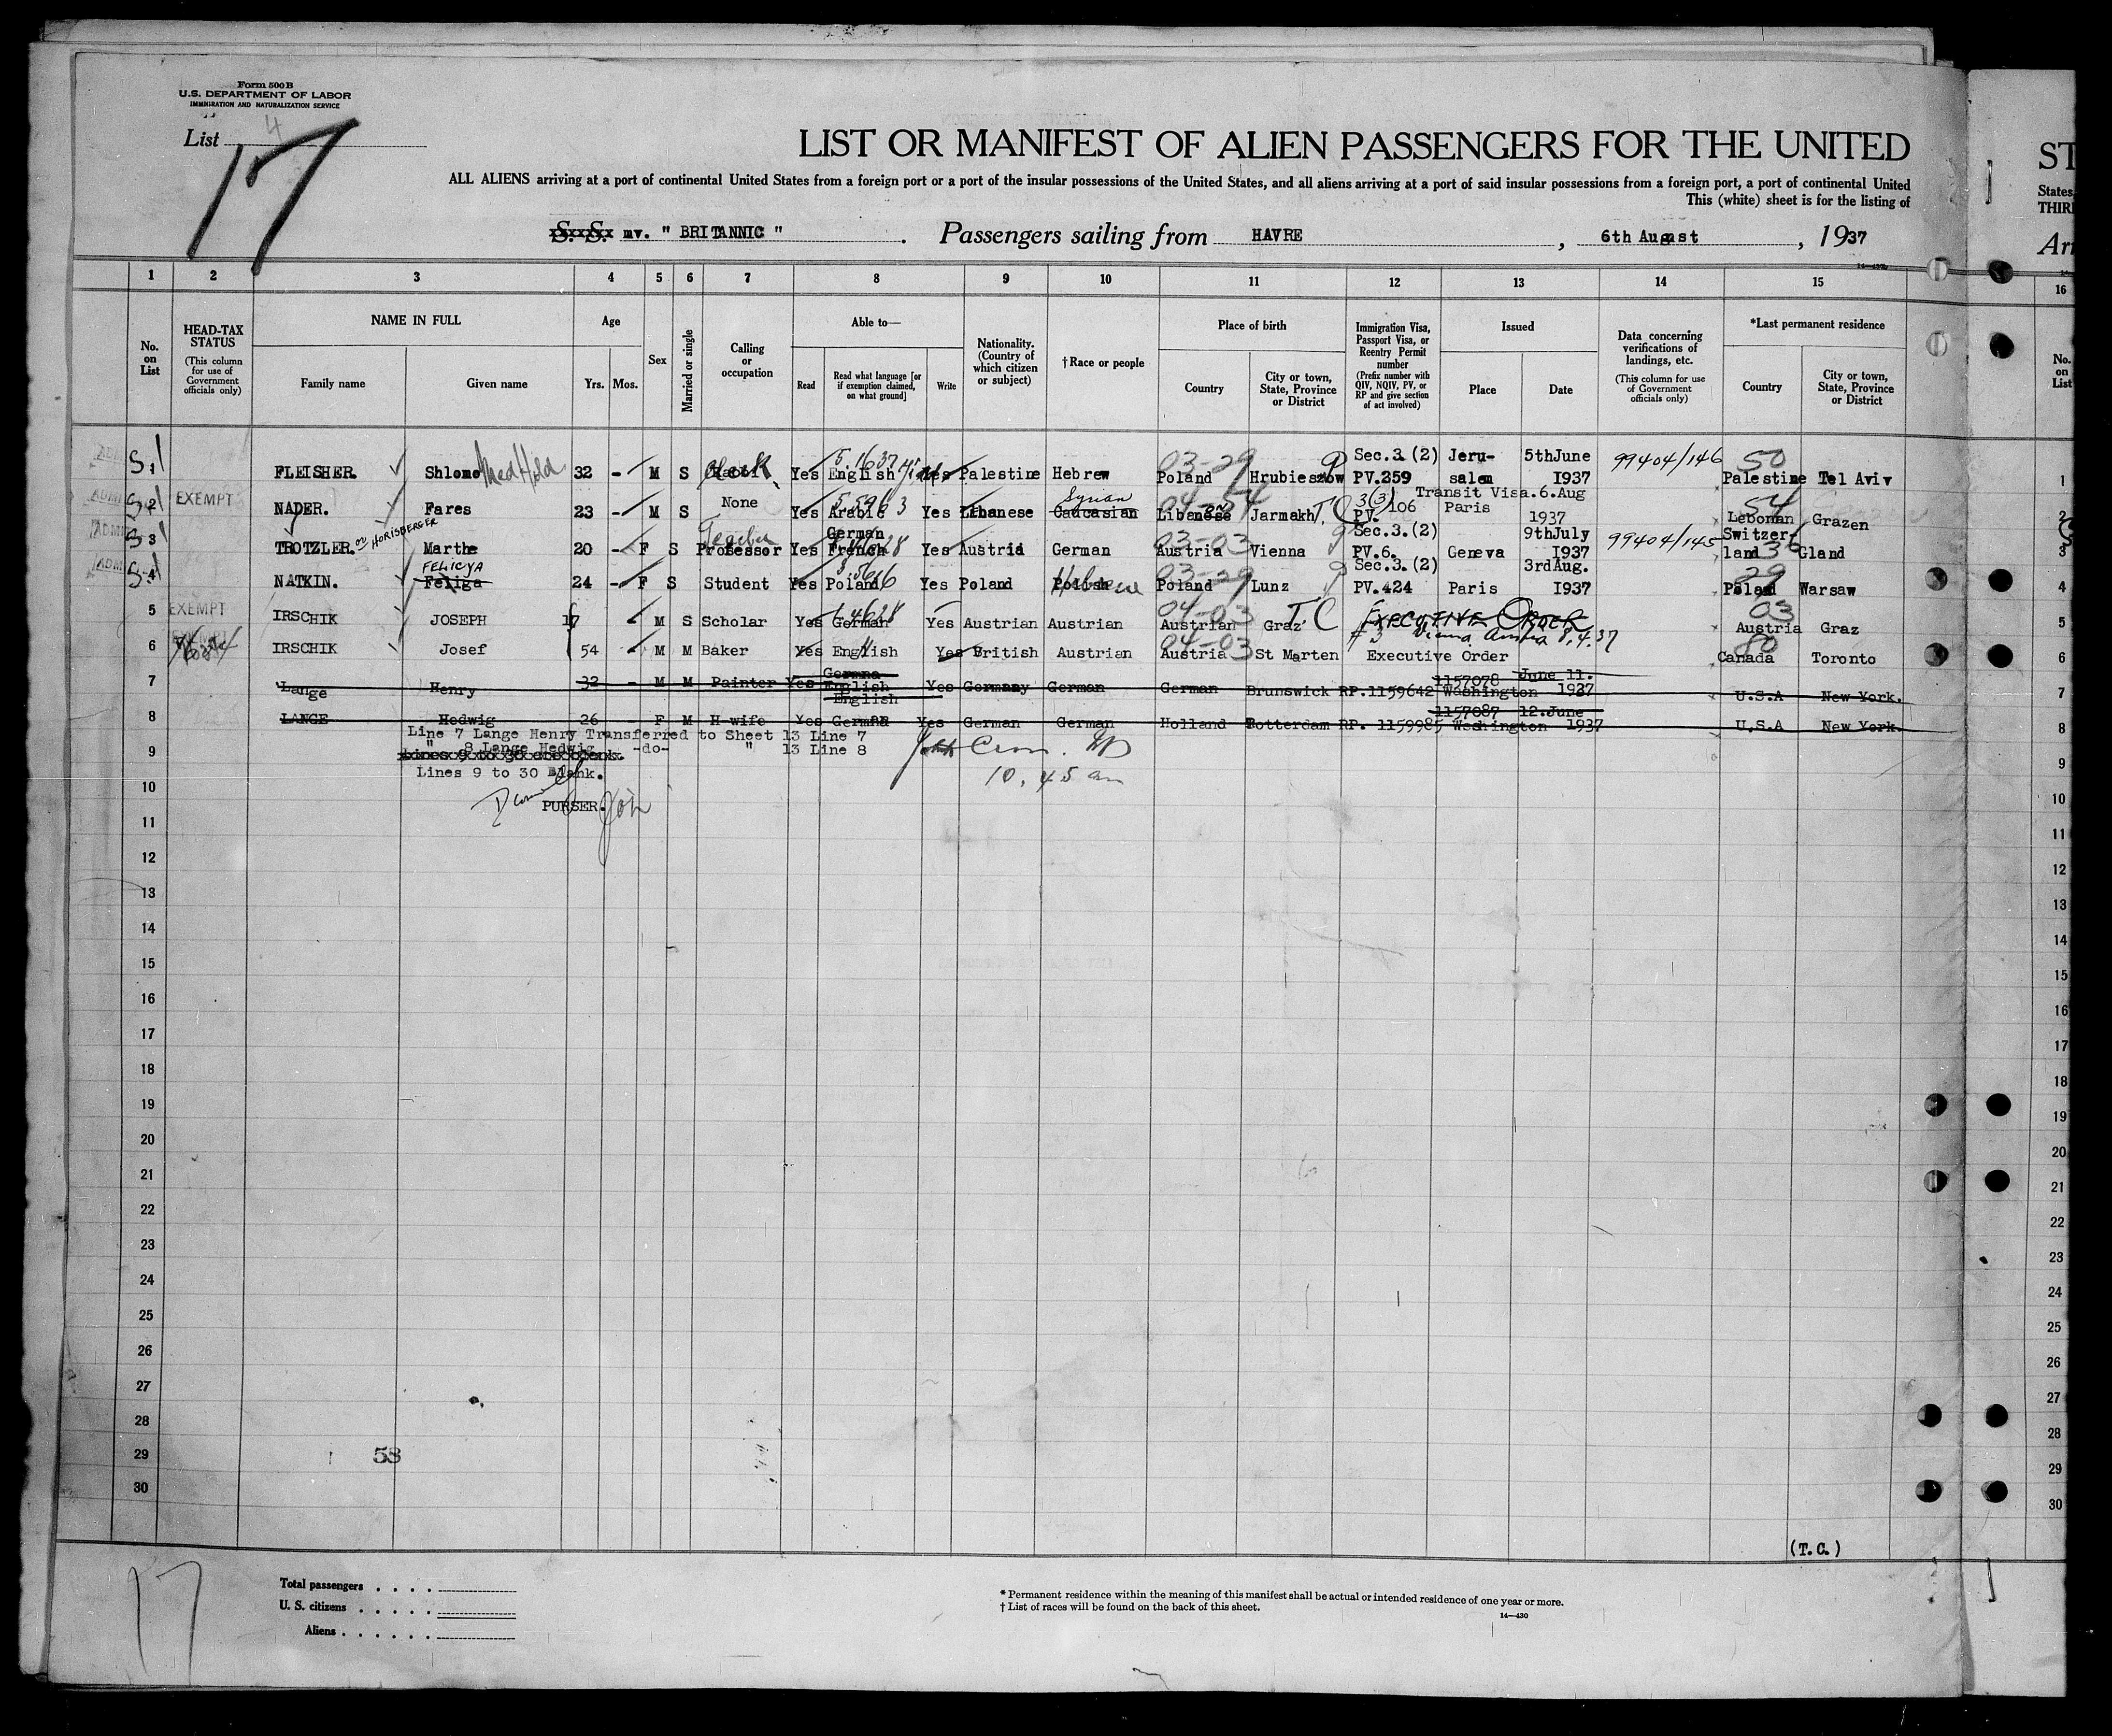 Form 500 B
U.S. DEPARTMENT OF LABOR
IMMIGRATION AND NATURALIZATION SERVICE
List 4
17
LIST OR MANIFEST OF ALIEN PASSENGERS FOR THE UNITED
ST
ALL ALIENS arriving at a port of continental United States from a foreign port or a port of the insular possessions of the United States, and all aliens arriving at a port of said insular possessions from a foreign port, a port of continental United
States,
This (white) sheet is for the listing of
THIR
S. S. mv. " BRITANNIC " . Passengers sailing from HAVRE , 6th August , 1937
Arr
1 2 3 4 5 6 7 8 9 10 11 12 13 14 15 16
No. on List
HEAD-TAX STATUS (This column for use of Government officials only)
NAME IN FULL
Family name Given name
Age
Yrs. Mos.
Sex
Married or single
Calling or occupation
Able to—
Read Read what language [or if exemption claimed, on what ground] Write
Nationality. (Country of which citizen or subject)
†Race or people
Place of birth
Country City or town, State, Province or District
Immigration Visa, Passport Visa, or Reentry Permit number (Prefix number with QIV, NQIV, PV, or RP and give section of act involved)
Issued
Place Date
Data concerning verifications of landings, etc. (This column for use of Government officials only)
*Last permanent residence
Country City or town, State, Province or District
No. on List
1 FLEISHER. Shlomo Med Hold 32 - M S Clerk Yes English Yes Palestine Hebrew 03-29 Poland Hrubieszow Sec.3.(2) PV.259 Jeru-salem 5thJune 1937 99404/146 50 Palestine Tel Aviv 1
2 EXEMPT NADER. Fares 23 - M S None Yes Arabic Yes Libanese Caucasian Syrian 04-54 Libanese Jarmakh. TC 3(3) PV. 106 Transit Visa.6.Aug Paris 1937 54 Lebonan Grazen 2
3 TROTZLER. or HORISBERGER Marthe 20 - F S Professor Teacher Yes German French Yes Austria German 03-03 Austria Vienna Sec.3.(2) PV.6. Geneva 9thJuly 1937 99404/145 Switzer-land Gland 3
4 NATKIN. Feliga FELICYA 24 - F S Student Yes Poland Yes Poland Polish Hebrew 03-29 Poland Lunz Sec.3.(2) PV.424 Paris 3rdAug. 1937 29 Poland Warsaw 4
5 EXEMPT IRSCHIK JOSEPH 17 M S Scholar Yes German Yes Austrian Austrian 04-03 Austrian Graz TC EXECUTIVE ORDER #3 Vienna Austria 8.4.37 03 Austria Graz 5
6 IRSCHIK Josef 54 M M Baker Yes English Yes British Austrian 04-03 Austria St Marten Executive Order 80 Canada Toronto 6
7 Lange Henry 32 - M M Painter Yes Germna English Yes Germany German German Brunswick RP.1159642 1157078 Washington June 11. 1937 U.S.A New York. 7
8 LANGE Hedwig 26 - F M H-wife Yes English German Yes German German Holland Rotterdam RP. 1159985 1157087 Washington 12.June 1937 U.S.A New York. 8
Line 7 Lange Henry Transferred to Sheet 13 Line 7
" 8 Lange Hedwig -do- " 13 Line 8
Lines 9 to 30 are blank.
Lines 9 to 30 Blank.
10.45 am
PURSER.
9 9
10 10
11 11
12 12
13 13
14 14
15 15
16 16
17 17
18 18
19 19
20 20
21 21
22 22
23 23
24 24
25 25
26 26
27 27
28 28
29 58 29
30 30
(T.C.)
17
Total passengers . . . .
U. S. citizens . . . . .
Aliens . . . . . .
* Permanent residence within the meaning of this manifest shall be actual or intended residence of one year or more.
† List of races will be found on the back of this sheet.
14—430